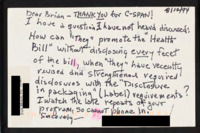 8/12/94
Dear Brian - THANK YOU for C-SPAN!
I have a question I have not heard discussed:
How can "they" promote the "Health
Bill" without disclosing every facet
of the bill, when "they" have recently
revised and strengthened required
disclosures with the "Disclosure
in packaging" (Label) requirements?
I watch the late repeats of your
program, so cannot phone in.
Sincerely